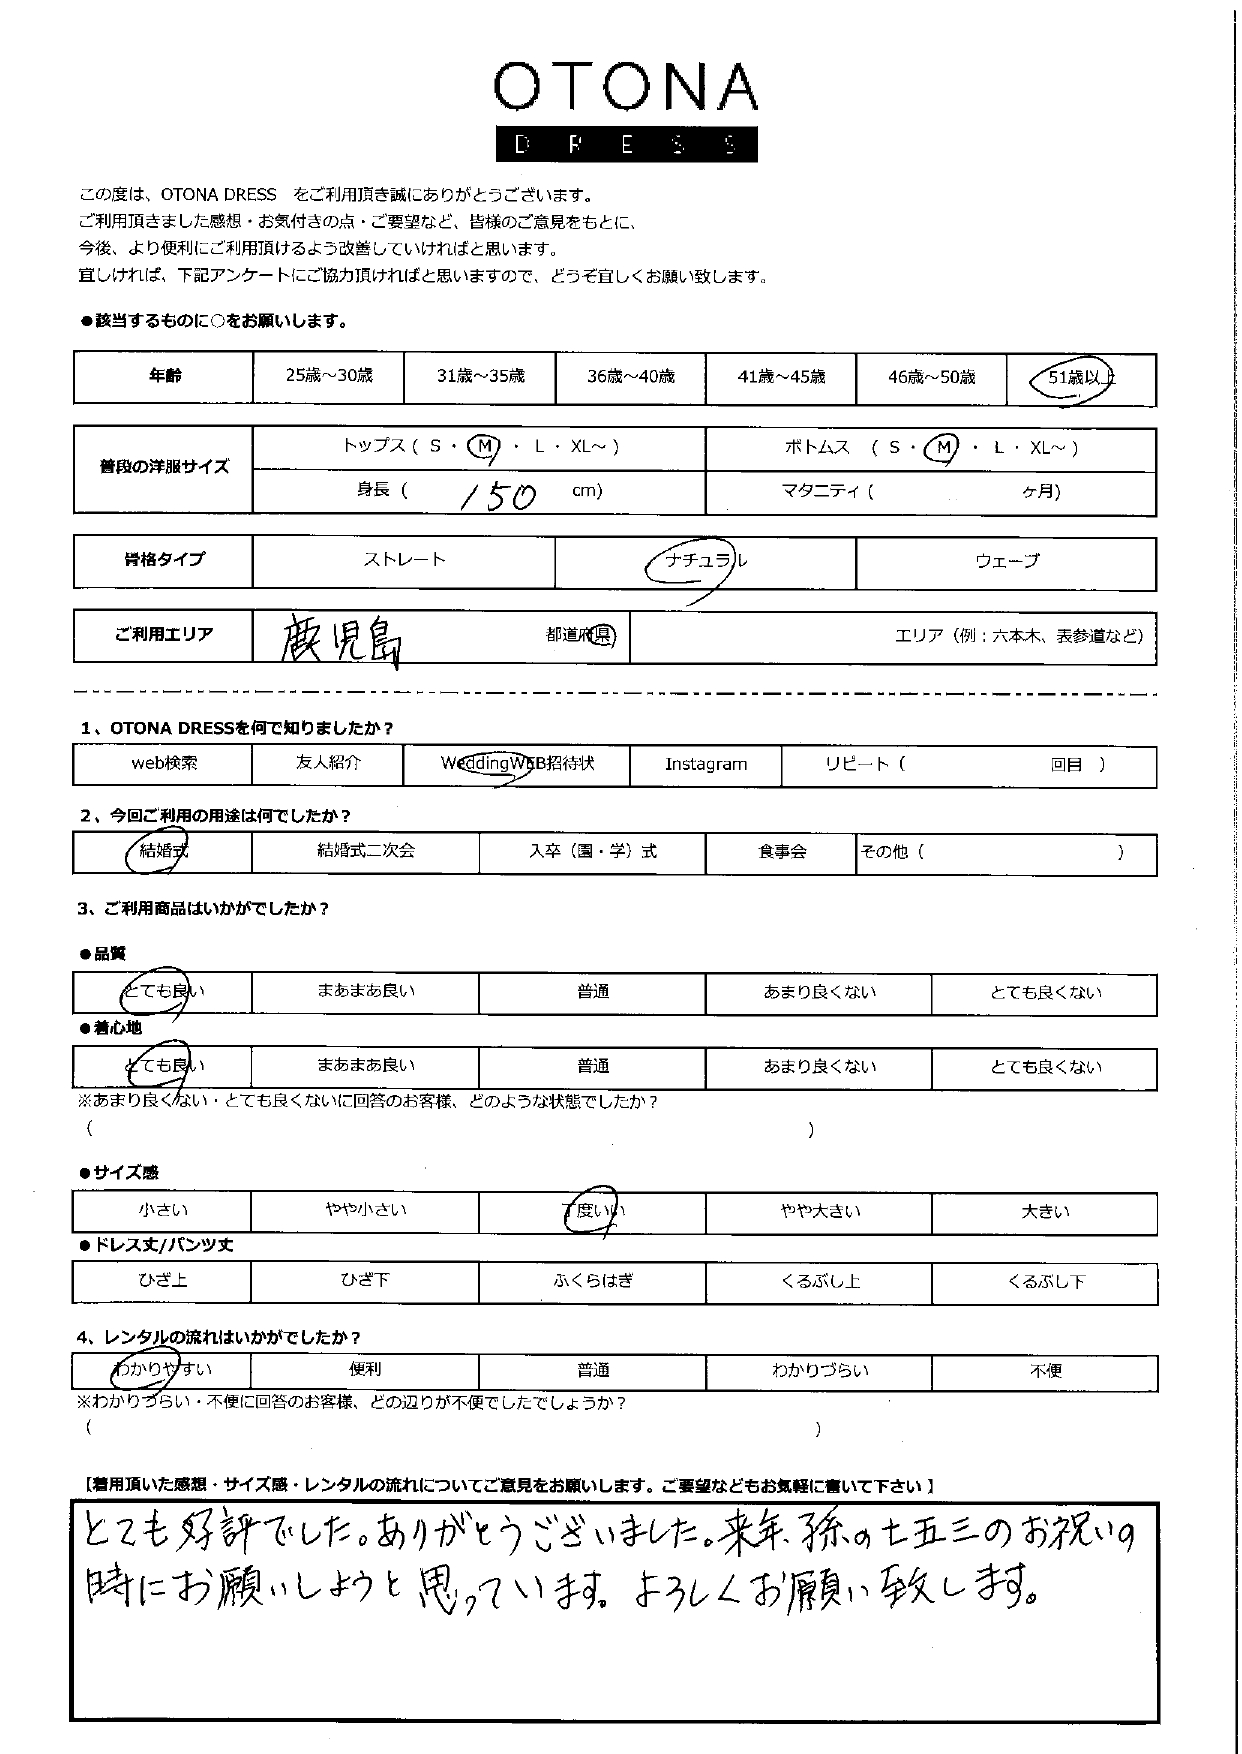 OTONA
DRESS
この度は、OTONA DRESS　をご利用頂き誠にありがとうございます。
ご利用頂きました感想・お気付きの点・ご要望など、皆様のご意見をもとに、
今後、より便利にご利用頂けるよう改善していければと思います。
宜しければ、下記アンケートにご協力頂ければと思いますので、どうぞ宜しくお願い致します。
●該当するものに○をお願いします。
年齢 25歳～30歳 31歳～35歳 36歳～40歳 41歳～45歳 46歳～50歳 51歳以上
普段の洋服サイズ トップス ( S ・ M ・ L ・ XL～ ) ボトムス ( S ・ M ・ L ・ XL～ )
身長 ( 150 cm) マタニティ ( ヶ月)
骨格タイプ ストレート ナチュラル ウェーブ
ご利用エリア 鹿児島 都道府県 エリア（例：六本木、表参道など）
1、OTONA DRESSを何で知りましたか？
web検索 友人紹介 WeddingWEB招待状 Instagram リピート（ 回目 ）
2、今回ご利用の用途は何でしたか？
結婚式 結婚式二次会 入卒（園・学）式 食事会 その他（ ）
3、ご利用商品はいかがでしたか？
●品質
とても良い まあまあ良い 普通 あまり良くない とても良くない
●着心地
とても良い まあまあ良い 普通 あまり良くない とても良くない
※あまり良くない・とても良くないに回答のお客様、どのような状態でしたか？
（ ）
●サイズ感
小さい やや小さい 丁度いい やや大きい 大きい
●ドレス丈/パンツ丈
ひざ上 ひざ下 ふくらはぎ くるぶし上 くるぶし下
4、レンタルの流れはいかがでしたか？
わかりやすい 便利 普通 わかりづらい 不便
※わかりづらい・不便に回答のお客様、どの辺りが不便でしたでしょうか？
（ ）
【着用頂いた感想・サイズ感・レンタルの流れについてご意見をお願いします。ご要望などもお気軽に書いて下さい 】
とても好評でした。ありがとうございました。来年、孫の七五三のお祝いの
時にお願いしようと思っています。よろしくお願い致します。